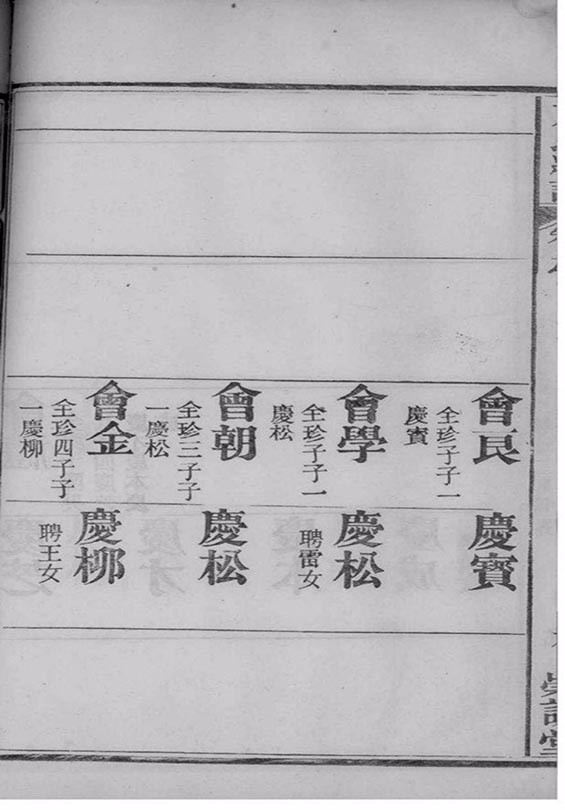 會民
全珍子子一
慶寶
會學
全珍子子一
慶松
會朝
全珍三子子
一慶松
會金
全珍四子子
一慶柳
慶寶
慶松
聘雷女
慶松
慶柳
聘王女